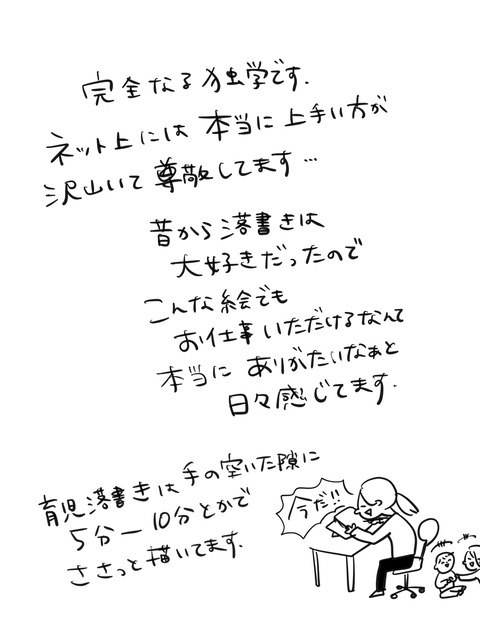 完全なる独学です.
ネット上には本当に上手い方が
沢山いて尊敬してます…
昔から落書きは
大好きだったので
こんな絵でも
お仕事いただけるなんて
本当にありがたいなぁと
日々感じてます.
育児落書きは手の空いた隙に
5分ー10分とかで
ささっと描いてます.
今だ!!